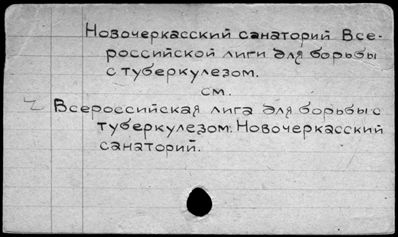 Новочеркасский санаторий Все-
российской лиги для борьбы
с туберкулезом.
см.
Всероссийская лига для борьбы с
туберкулезом. Новочеркасский
санаторий.